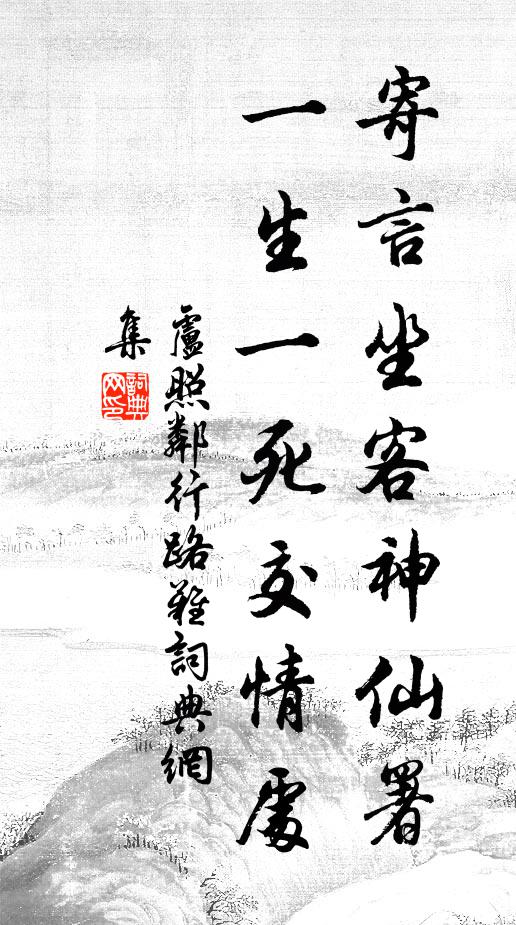 寄言坐客神仙署
一生一死交情處
盧照鄰行路難詞典網
集
詞典網印